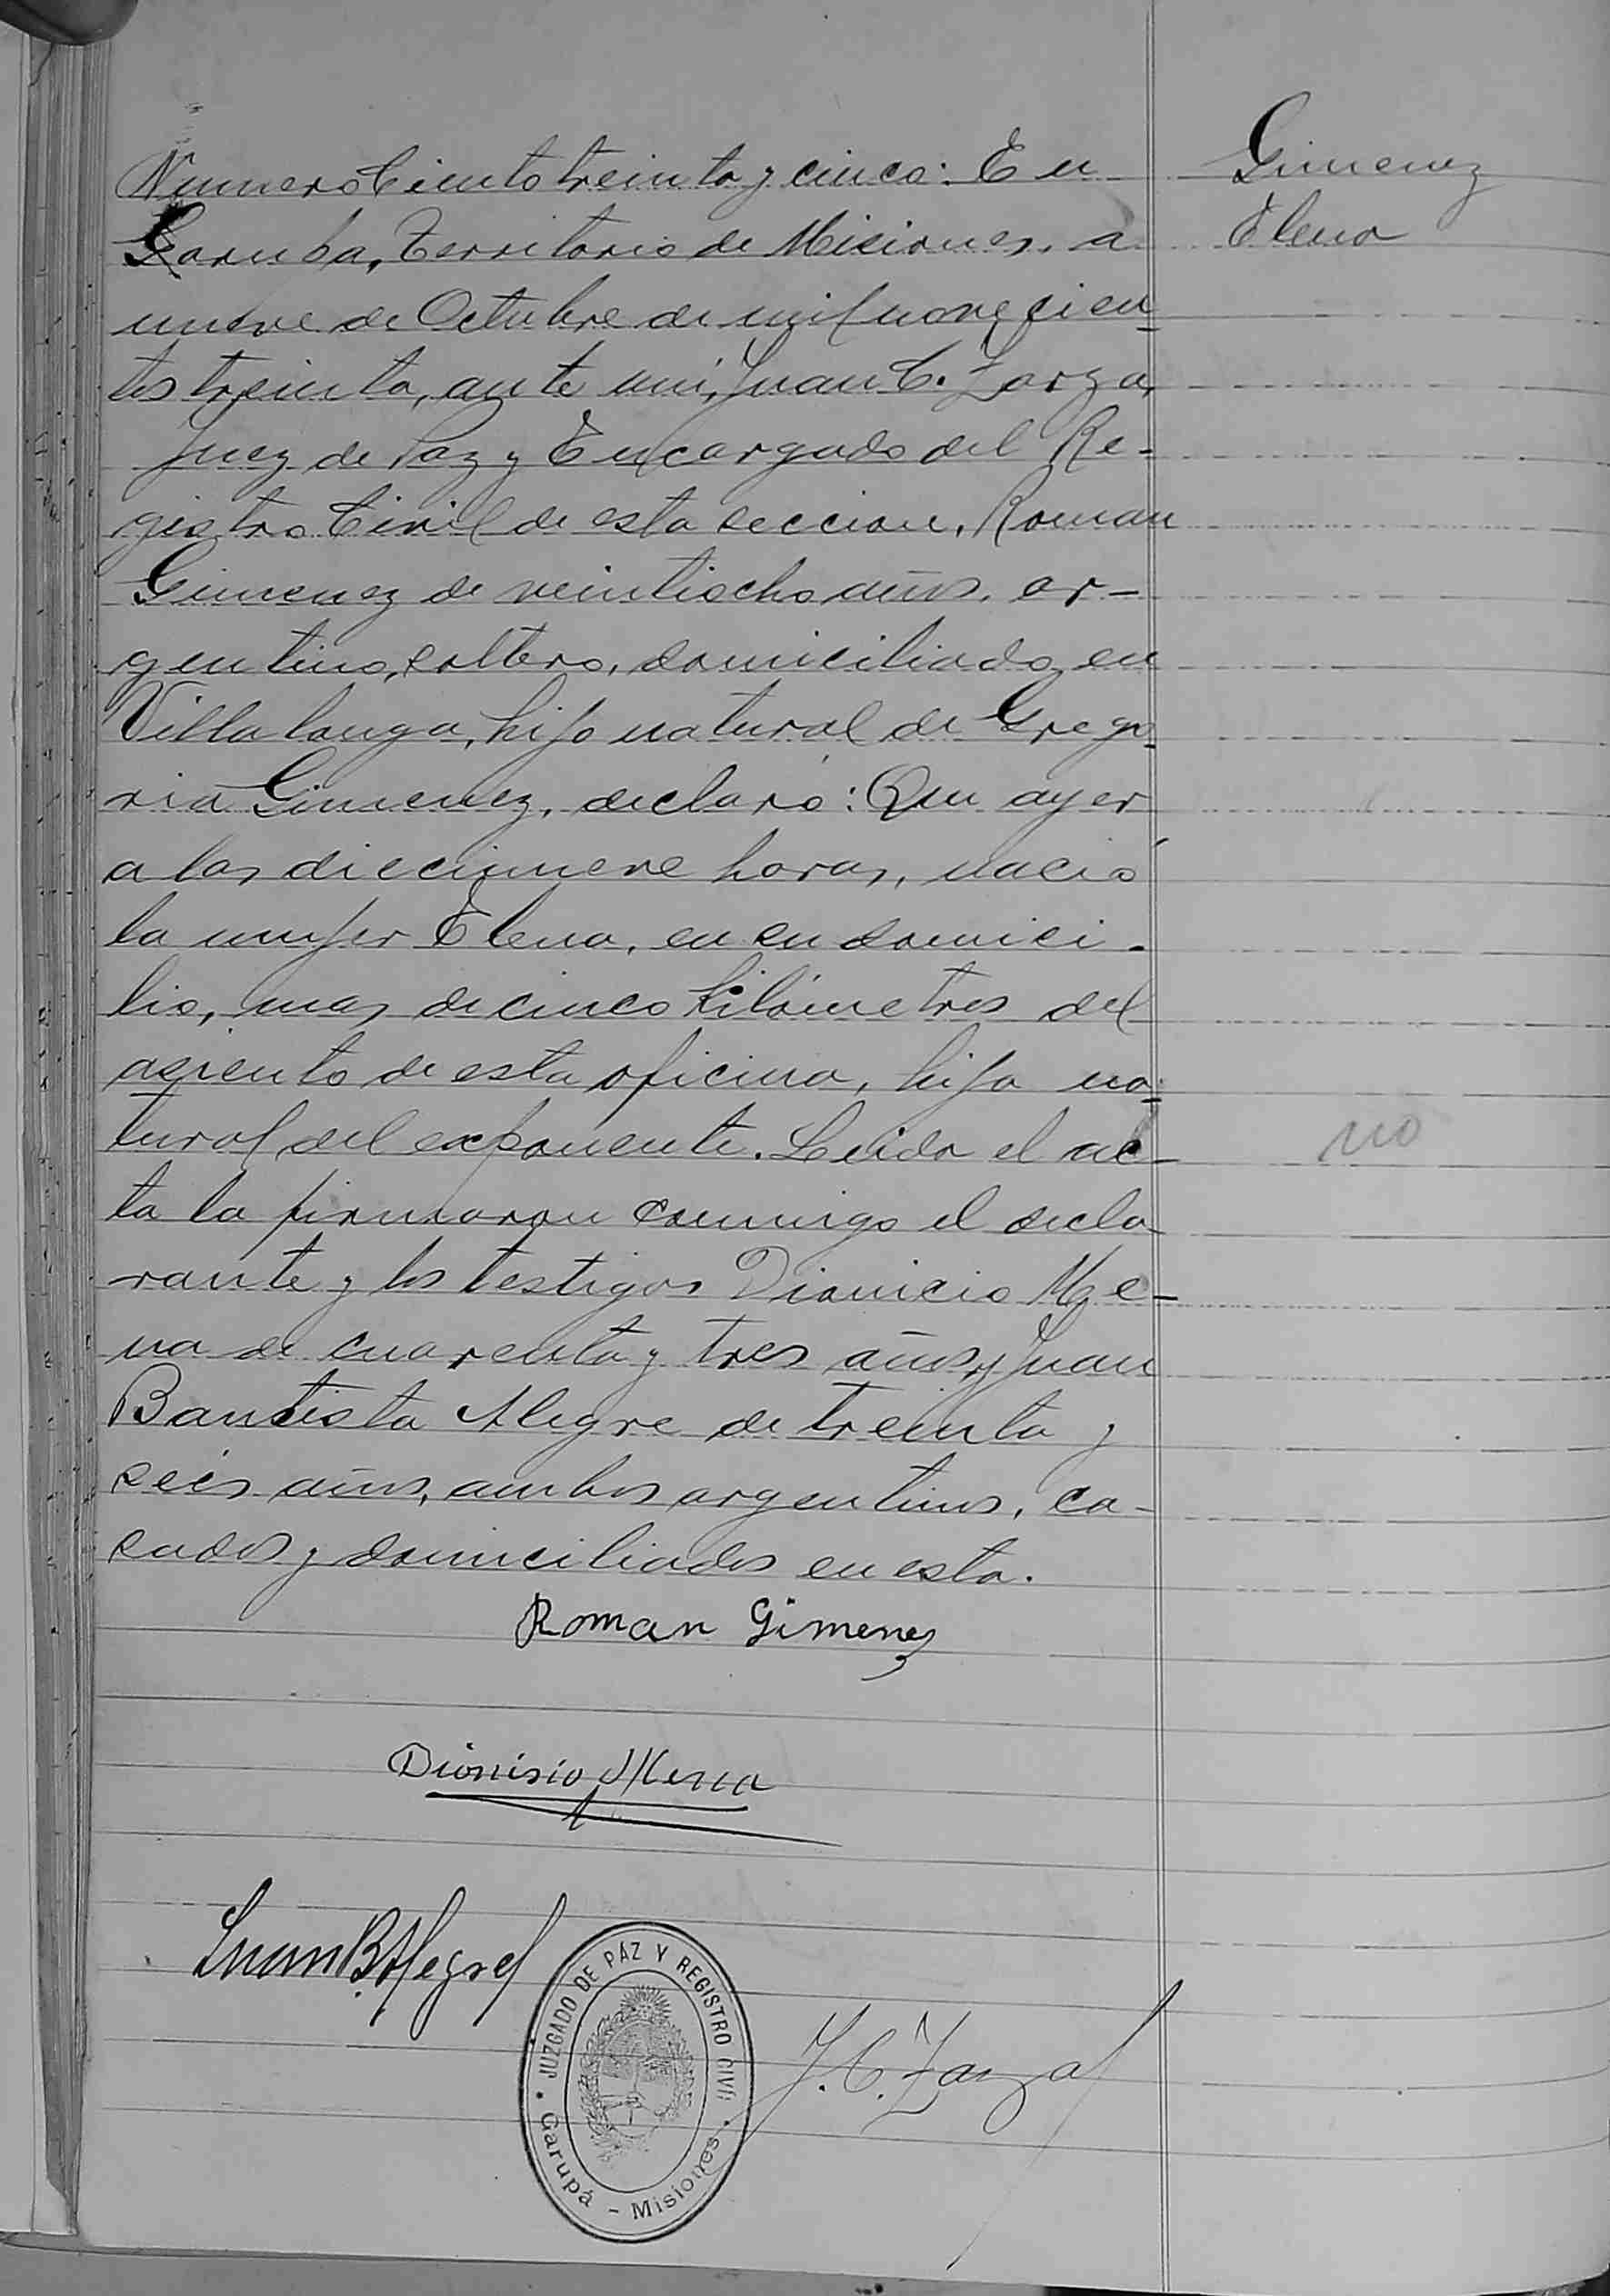 Numero Ciento treinta y cinco: En
Garupa, Territorio de Misiones, a
nueve de Octubre de mil novecien-
tos treinta, ante mi, Juan C. Zarza,
Juez de Paz y Encargado del Re-
gistro Civil de esta seccion, Roman
Gimenez de veintiocho años, ar-
gentino, soltero, domiciliado en
Villa longa, hijo natural de Grego-
ria Gimenez, declaró: Que ayer
a las diecinueve horas, nació
la mujer Elena, en su domici-
lio, mas de cinco kilómetros del
asiento de esta oficina, hija na-
tural del exponente. Leida el ac-
ta la firmaron conmigo el decla
rante y los testigos Dionicio Me-
na de cuarenta y tres años y Juan
Bautista Alegre de treinta y
seis años, ambos argentinos, ca-
sados y domiciliados en esta.
Roman Gimenez
Dionisio Mena
Juan B. Alegre
J. C. Zarza
JUZGADO DE PAZ Y REGISTRO CIVIL
Garupá - Misiones
Gimenez
Elena
no